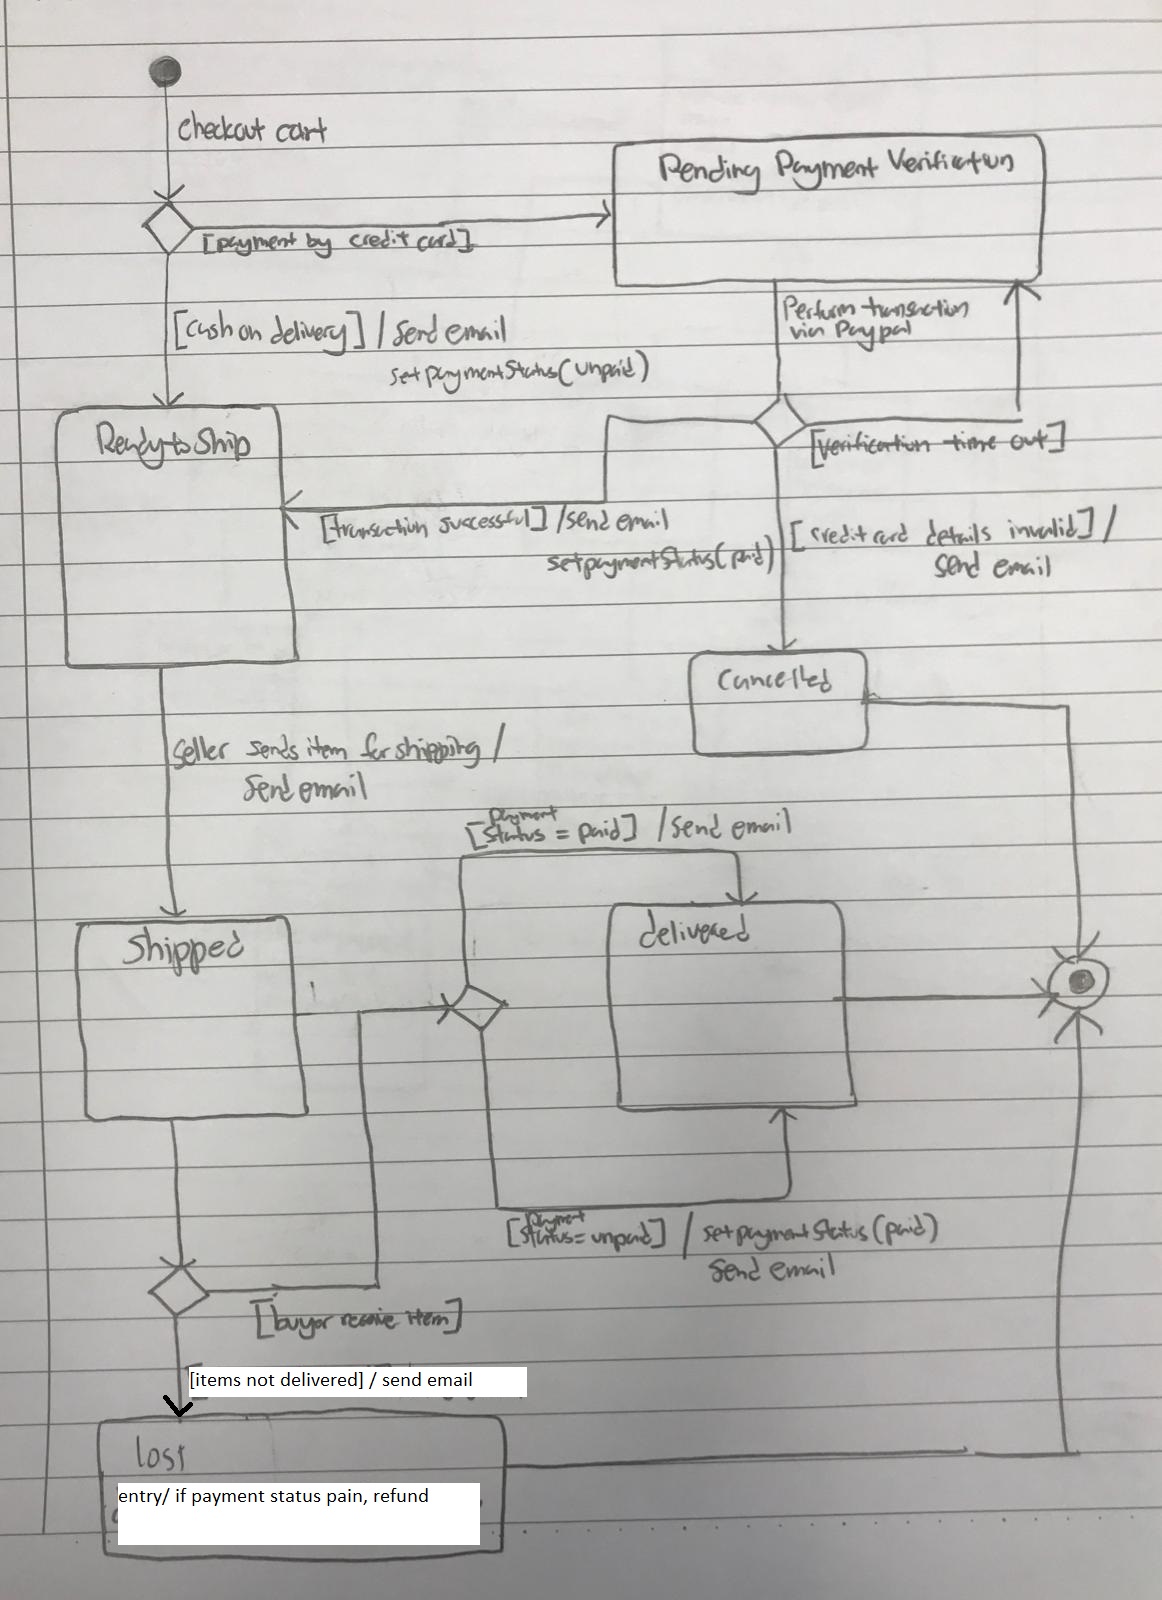 checkout cart
Pending Payment Verification
[payment by credit card]
[cash on delivery] / send email
setpaymentStatus(unpaid)
Perform transaction
via Paypal
Ready to Ship
[verification time out]
[transaction successful] /send email
setpaymentStatus(paid)
[credit card details invalid] /
send email
Cancelled
seller sends item for shipping /
send email
payment
[status = paid] /send email
Shipped
delivered
payment
[status = unpaid] / setpaymentStatus(paid)
send email
[buyer receive item]
[items not delivered] / send email
lost
entry/ if payment status pain, refund